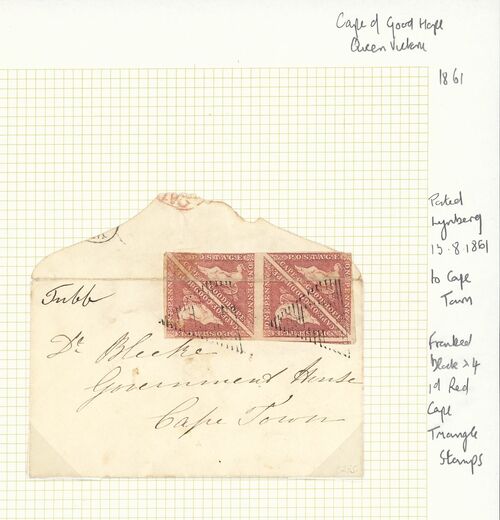 Cape of Good Hope
Queen Victoria
1861
Posted
Wynberg
15.8.1861
to Cape
Town
Franked
block of 4
1d Red
Cape
Triangle
Stamps
POSTAGE
POSTAGE
Tubb
Dr Bleeke
Government House
Cape Town